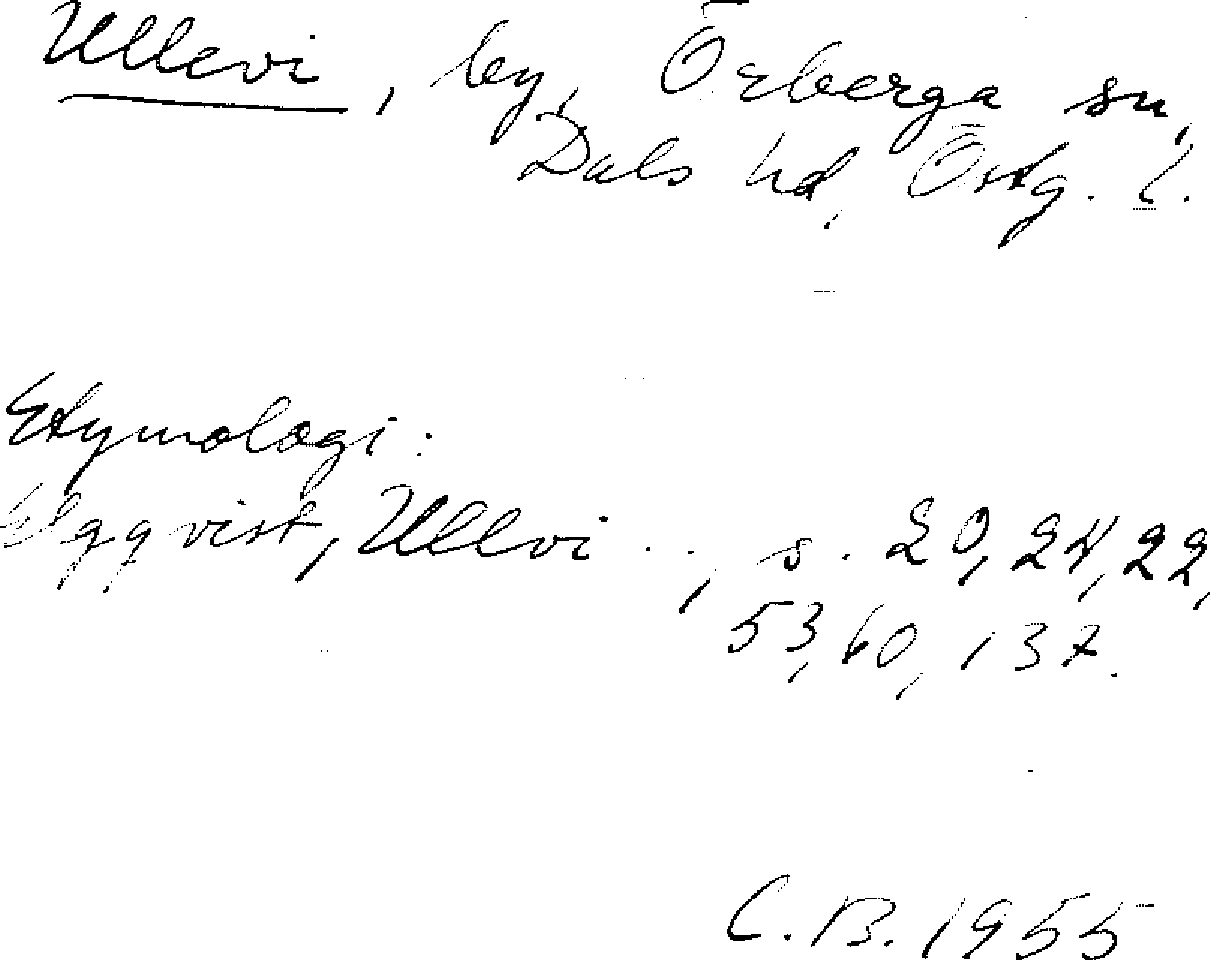 Ullevi, by, Örberga sn,
Dals hd, Östg. l.
Etymologi:
Elgqvist, Ullvi . . , s. 20, 24, 22,
53, 60, 137.
C.B. 1955